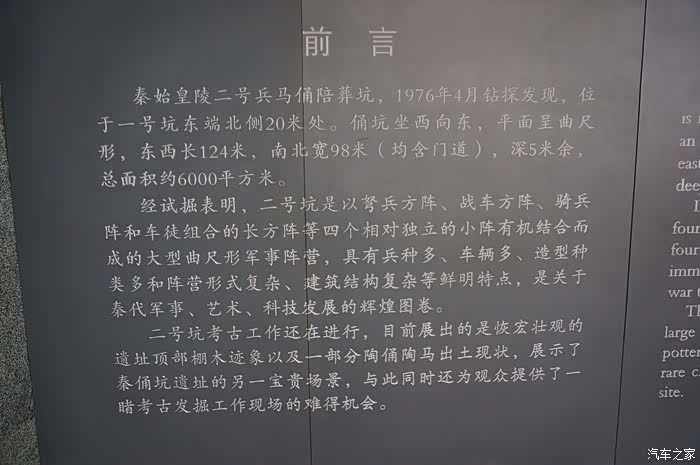 前 言
秦始皇陵二号兵马俑陪葬坑，1976年4月钻探发现，位
于一号坑东端北侧20米处。俑坑坐西向东，平面呈曲尺
形，东西长124米，南北宽98米（均含门道），深5米余，
总面积约6000平方米。
经试掘表明，二号坑是以弩兵方阵、战车方阵、骑兵
阵和车徒组合的长方阵等四个相对独立的小阵有机结合而
成的大型曲尺形军事阵营，具有兵种多、车辆多、造型种
类多和阵营形式复杂、建筑结构复杂等鲜明特点，是关于
秦代军事、艺术、科技发展的辉煌图卷。
二号坑考古工作还在进行，目前展出的是恢宏壮观的
遗址顶部棚木迹象以及一部分陶俑陶马出土现状，展示了
秦俑坑遗址的另一宝贵场景，与此同时还为观众提供了一
睹考古发掘工作现场的难得机会。
is
an
east
dee
four
four
imm
war t
Th
large
potter
rare c
site.
汽车之家